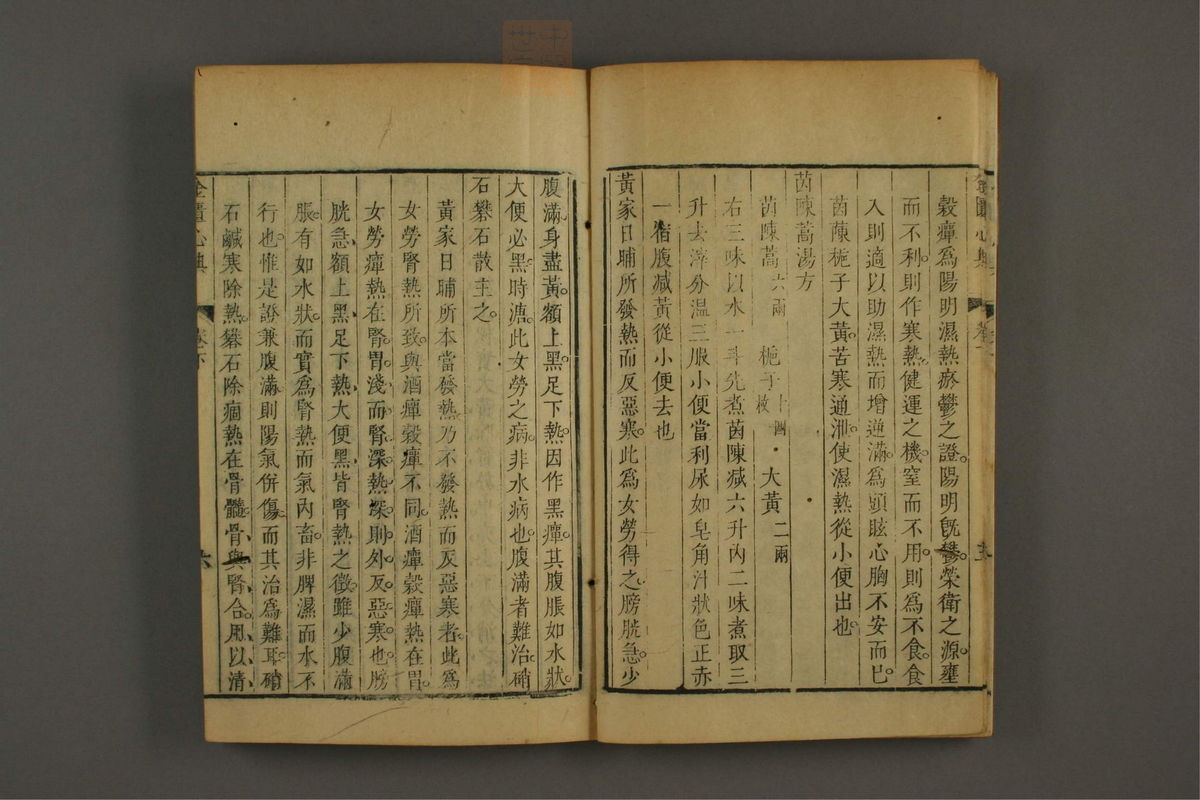 穀癉爲陽明濕熱瘀鬱之證陽明旣鬱榮衛之源壅
而不利則作寒熱健運之機窒而不用則爲不食食
入則適以助濕熱而增逆滿爲頭眩心胸不安而已
茵蔯梔子大黃苦寒通泄使濕熱從小便出也
茵陳蒿湯方
茵陳蒿六兩 梔子十四枚 大黃二兩
右三味以水一斗先煮茵陳減六升內二味煮取三
升去滓分溫三服小便當利尿如皂角汁狀色正赤
一宿腹減黃從小便去也
黃家日晡所發熱而反惡寒此爲女勞得之膀胱急少
腹滿身盡黃額上黑足下熱因作黑癉其腹脹如水狀
大便必黑時溏此女勞之病非水病也腹滿者難治硝
石礬石散主之
黃家日晡所本當發熱乃不發熱而反惡寒者此爲
女勞腎熱所致與酒癉穀癉不同酒癉穀癉熱在胃
女勞癉熱在腎胃淺而腎深熱深則外反惡寒也膀
胱急額上黑足下熱大便黑皆腎熱之徵雖少腹滿
脹有如水狀而實爲腎熱而氣內畜非脾濕而水不
行也惟是證兼腹滿則陽氣併傷而其治爲難耳硝
石鹹寒除熱礬石除痼熱在骨髓骨與腎合用以清
金匱心典 卷下